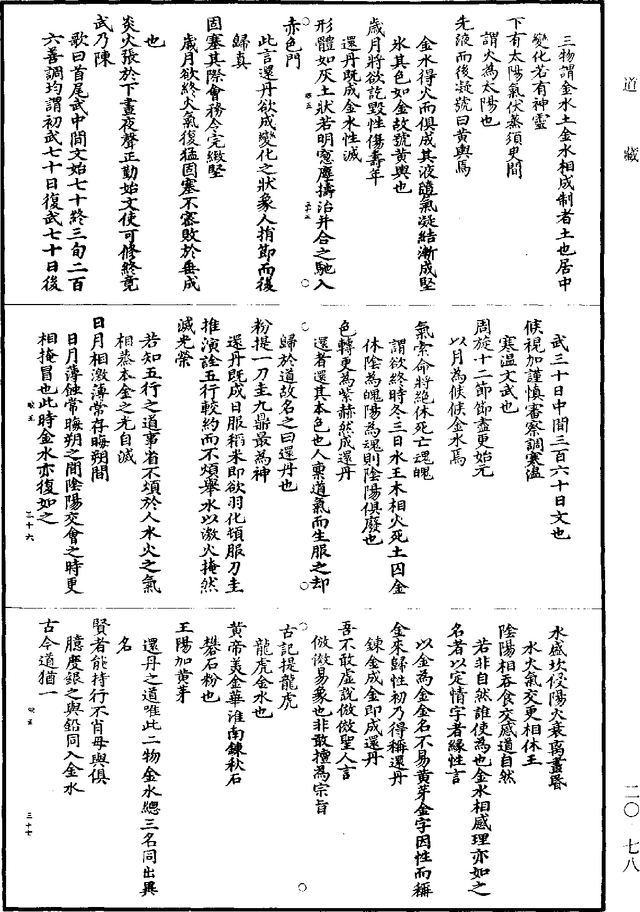 道藏
三物謂金水土金水相成制者土也居中
變化若有神靈
下有太陽氣伏蒸須臾間
謂火為太陽也
先液而後凝號曰黃輿焉
金水得火而俱成其液隨氣凝結漸成堅
冰其色如金故號黃輿也
歲月將欲訖毀性傷壽年
還丹既成金水性滅
形體如灰土狀若明窻塵擣治并合之馳入
赤色門
此言還丹欲成變化之狀象人捐節而後
歸真
固塞其際會務令完緻堅
歲月欲終火氣復猛固塞不密敗於垂成
也
炎火張於下晝夜聲正勤始文使可修終竟
武乃陳
歌曰首尾武中間文始七十終三旬二百
六善調均謂初武七十日復武七十日後
武三十日中間三百六十日文也
候視加謹慎審察調寒溫
寒溫文武也
周旋十二節節盡更始元
以月為候候金水焉
氣索命將絕休死亡魂魄
謂欲終時冬三日水王木相火死土囚金
休陰為魄陽為魂則陰陽俱廢也
色轉更為紫赫然成還丹
還者還其本色也人稟道氣而生服之却
歸於道故名之曰還丹也
粉提一刀圭九鼎最為神
還丹既成日服稻米即欲羽化頓服刀圭
推演詮五行較約而不煩舉水以激火掩然
滅光榮
若知五行之道事省不煩於人水火之氣
相蒸本金之光自滅
日月相激薄常存晦朔間
日月薄蝕常晦朔之間陰陽交會之時更
相掩冒也此時金水亦復如之
三十六
水盛坎侵陽火衰离晝昏
水火氣交更相休王
陰陽相吞食交感道自然
若非自然誰使為也金水相感理亦如之
名者以定情字者緣性言
以金為金金名不易黃芽金字因性而稱
金來歸性初乃得稱還丹
鍊金成金即成還丹
吾不敢虛說倣倣聖人言
倣儌易象也非敢擅為宗旨
古記提龍虎
龍虎金水也
黃帝美金華淮南鍊秋石
礬石粉也
王陽加黃芽
還丹之道唯此二物金水總三名同出異
名
賢者能持行不肖母與俱
臆度銀之與鉛同入金水
古今道猶一
三十七
二〇 七八